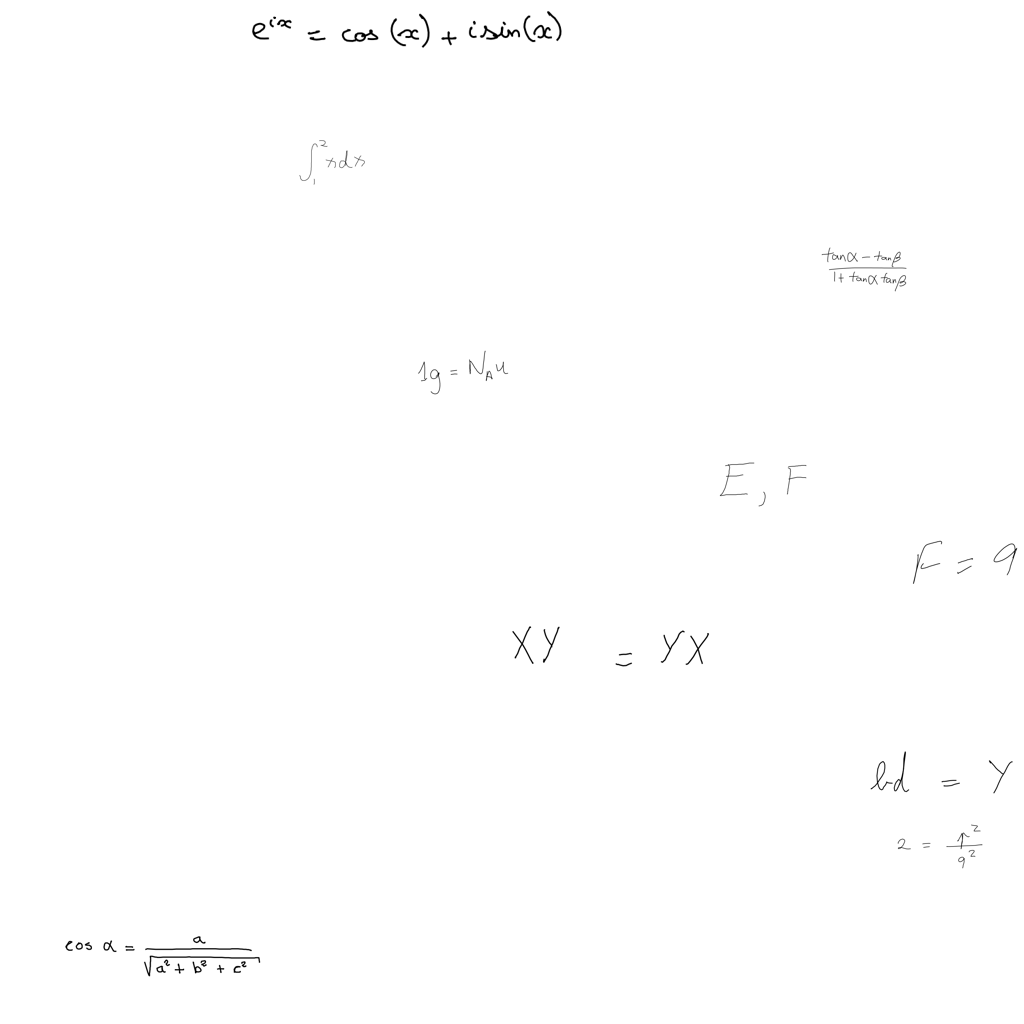 e^{ix} = cos(x) + i sin(x)
\int_1^2 x dx
\frac{tan α - tan β}{1 + tan α tan β}
1g = N_A u
E, F
F = 9
XY = YX
bd = Y
2 = \frac{p^2}{q^2}
cos α = \frac{a}{\sqrt{a^2 + b^2 + c^2}}